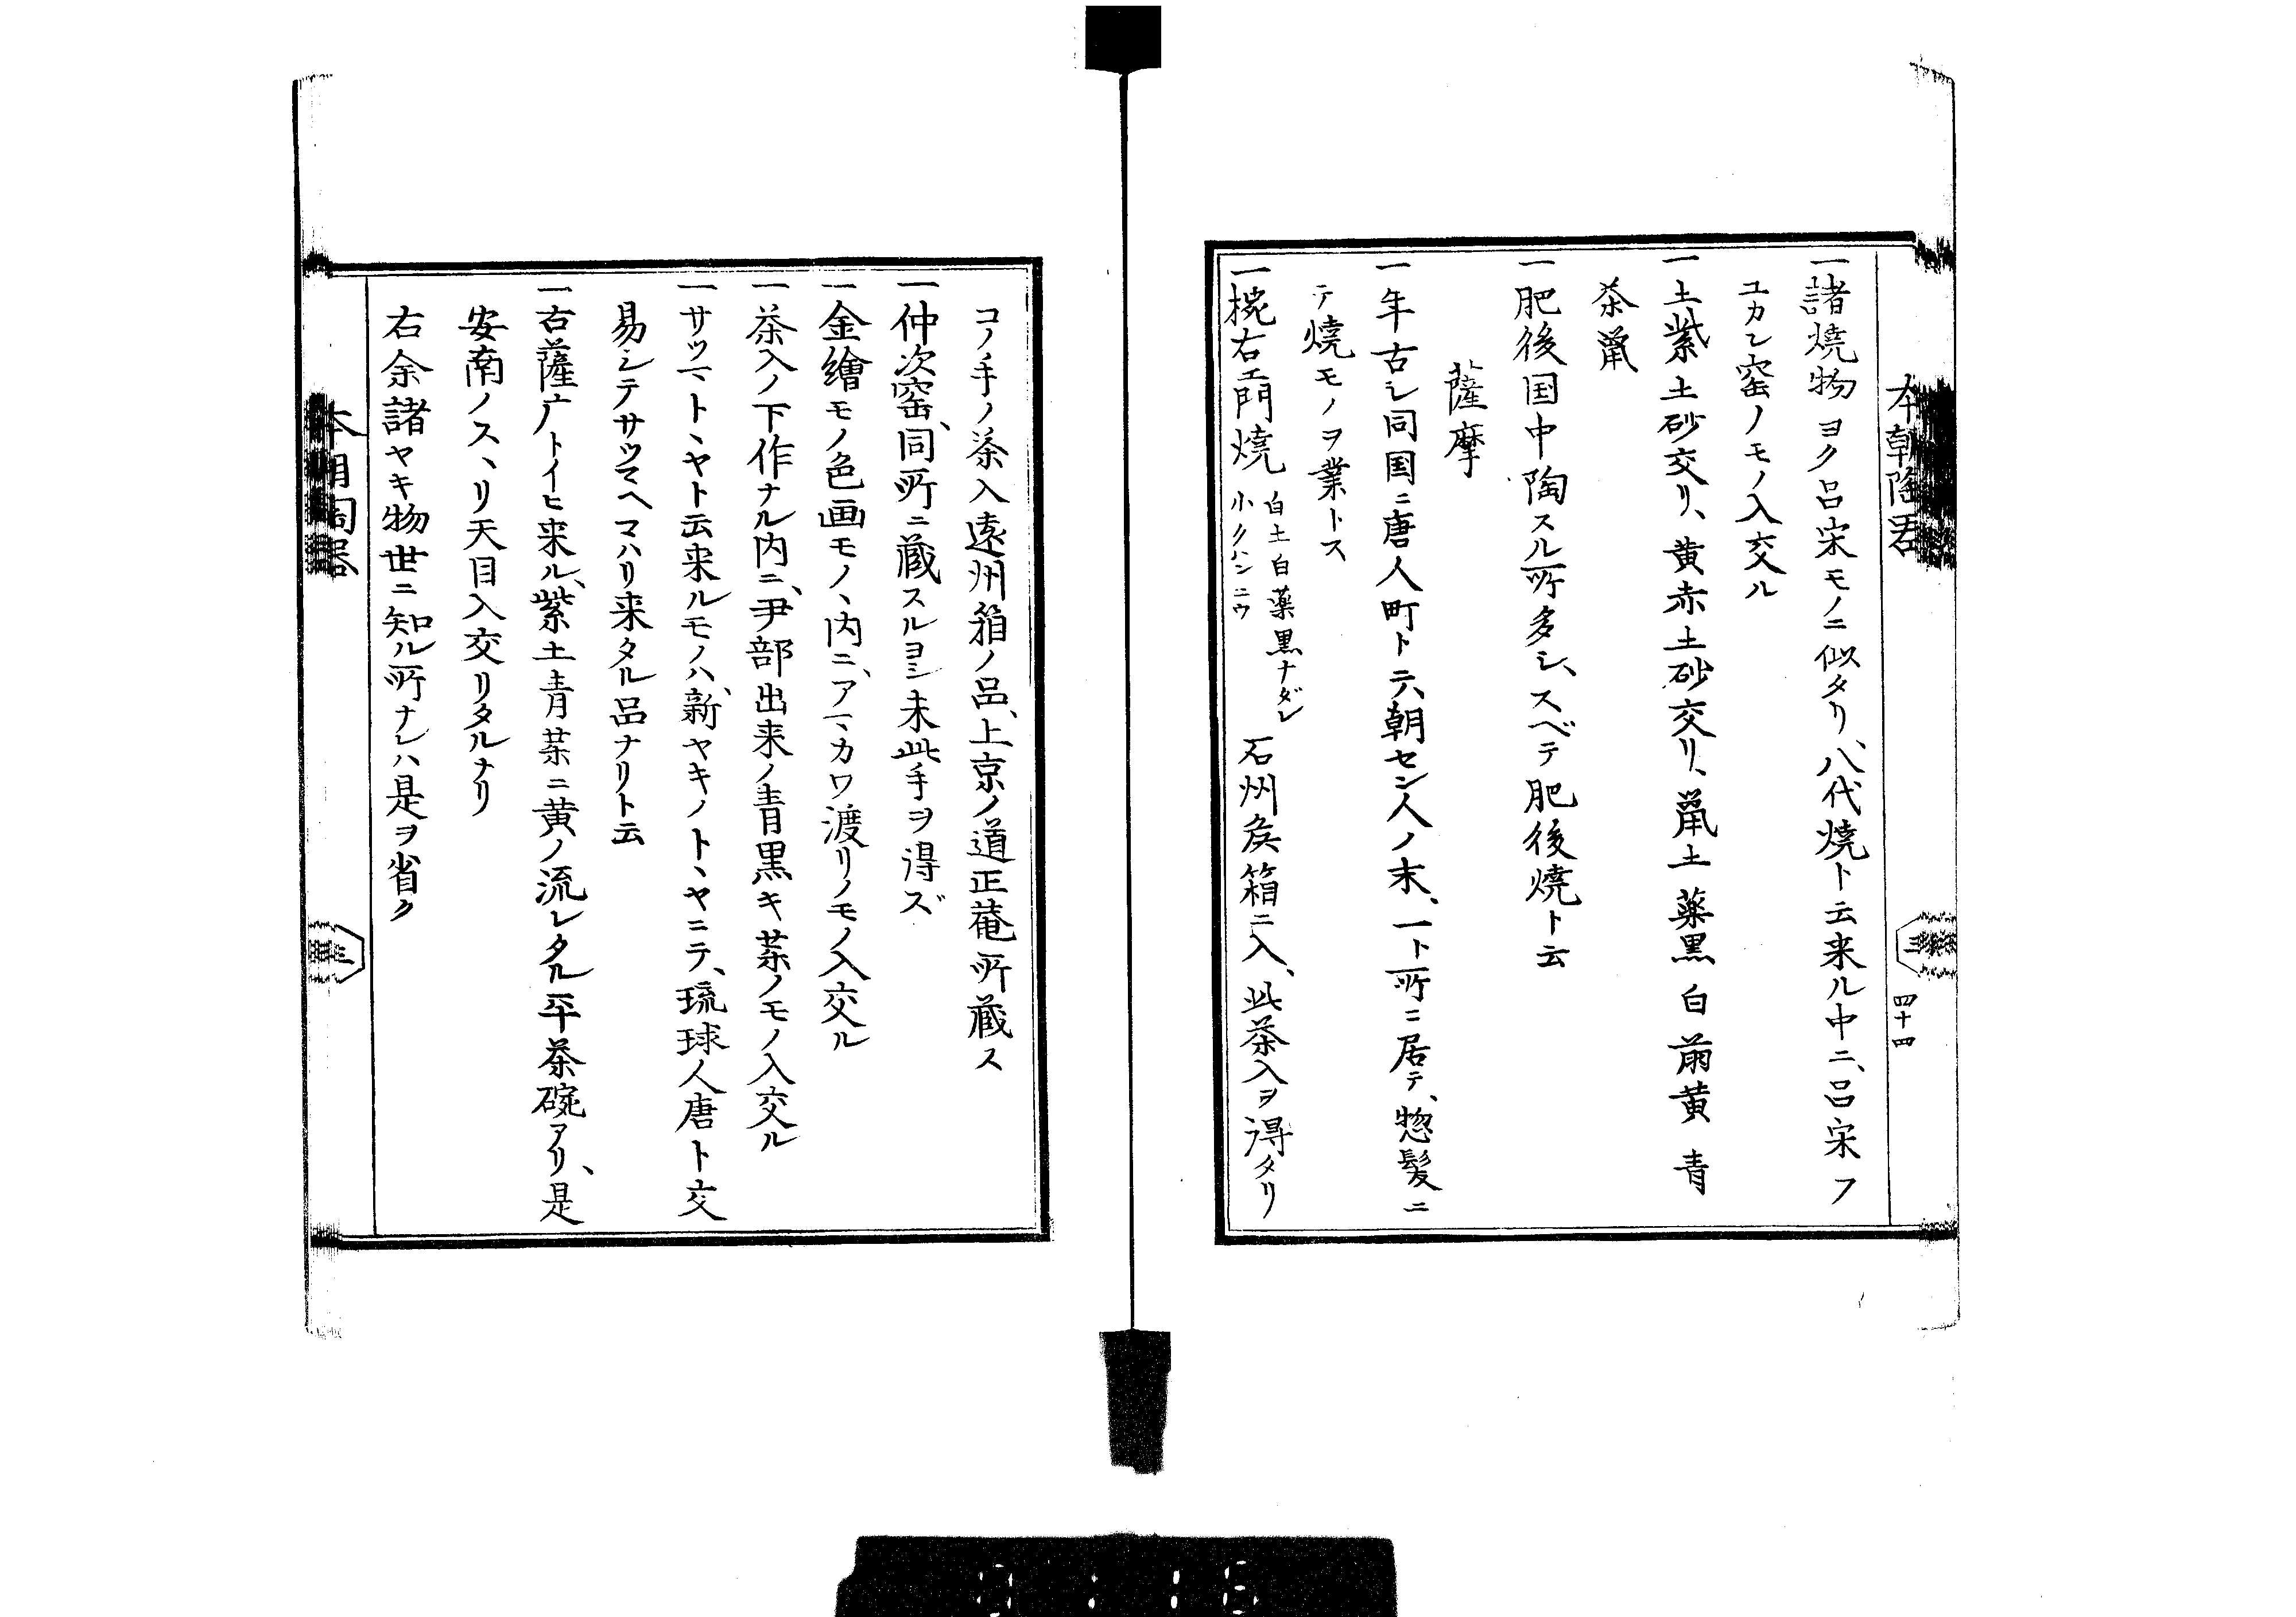 本朝陶器
四十四
一諸燒物ヨク呂宋モノニ似タリ、八代燒ト云来ル中ニ、呂宋フ
ユカシ窑ノモノ入交ル
一土紫土砂交リ、黄赤土砂交リ、鼠土薬黒白前黄青
茶鼠
一肥後国中陶スル所多シ、スベテ肥後燒ト云
薩摩
一年古シ同国ニ唐人町トテ、朝セン人ノ末、一ト所ニ居テ、惣髪ニ
テ燒モノヲ業トス
一椀右エ門燒 白土白薬黒ナダレ
小クハンニウ
石州矦箱ニ入、此茶入ヲ得タリ
コノ手ノ茶入遠州箱ノ品、上京ノ道正菴所蔵ス
一仲次窑、同所ニ蔵スルヨシ未此手ヲ得ズ
一金繪モノ色画モノヽ内ニ、アマカワ渡リノモノ入交ル
一茶入ノ下作ナル内ニ、尹部出来ノ青黒キ茶ノモノ入交ル
一サツマトヽヤト云来ルモノハ、新ヤキノトヽヤニテ、琉球人唐ト交
易シテサツマヘマハリ来タル品ナリト云
一古薩广トイヒ来ル、紫土青茶ニ黄ノ流レタル平茶碗アリ、是
安南ノスヽリ天目入交リタルナリ
右余諸ヤキ物世ニ知ル所ナレハ是ヲ省ク